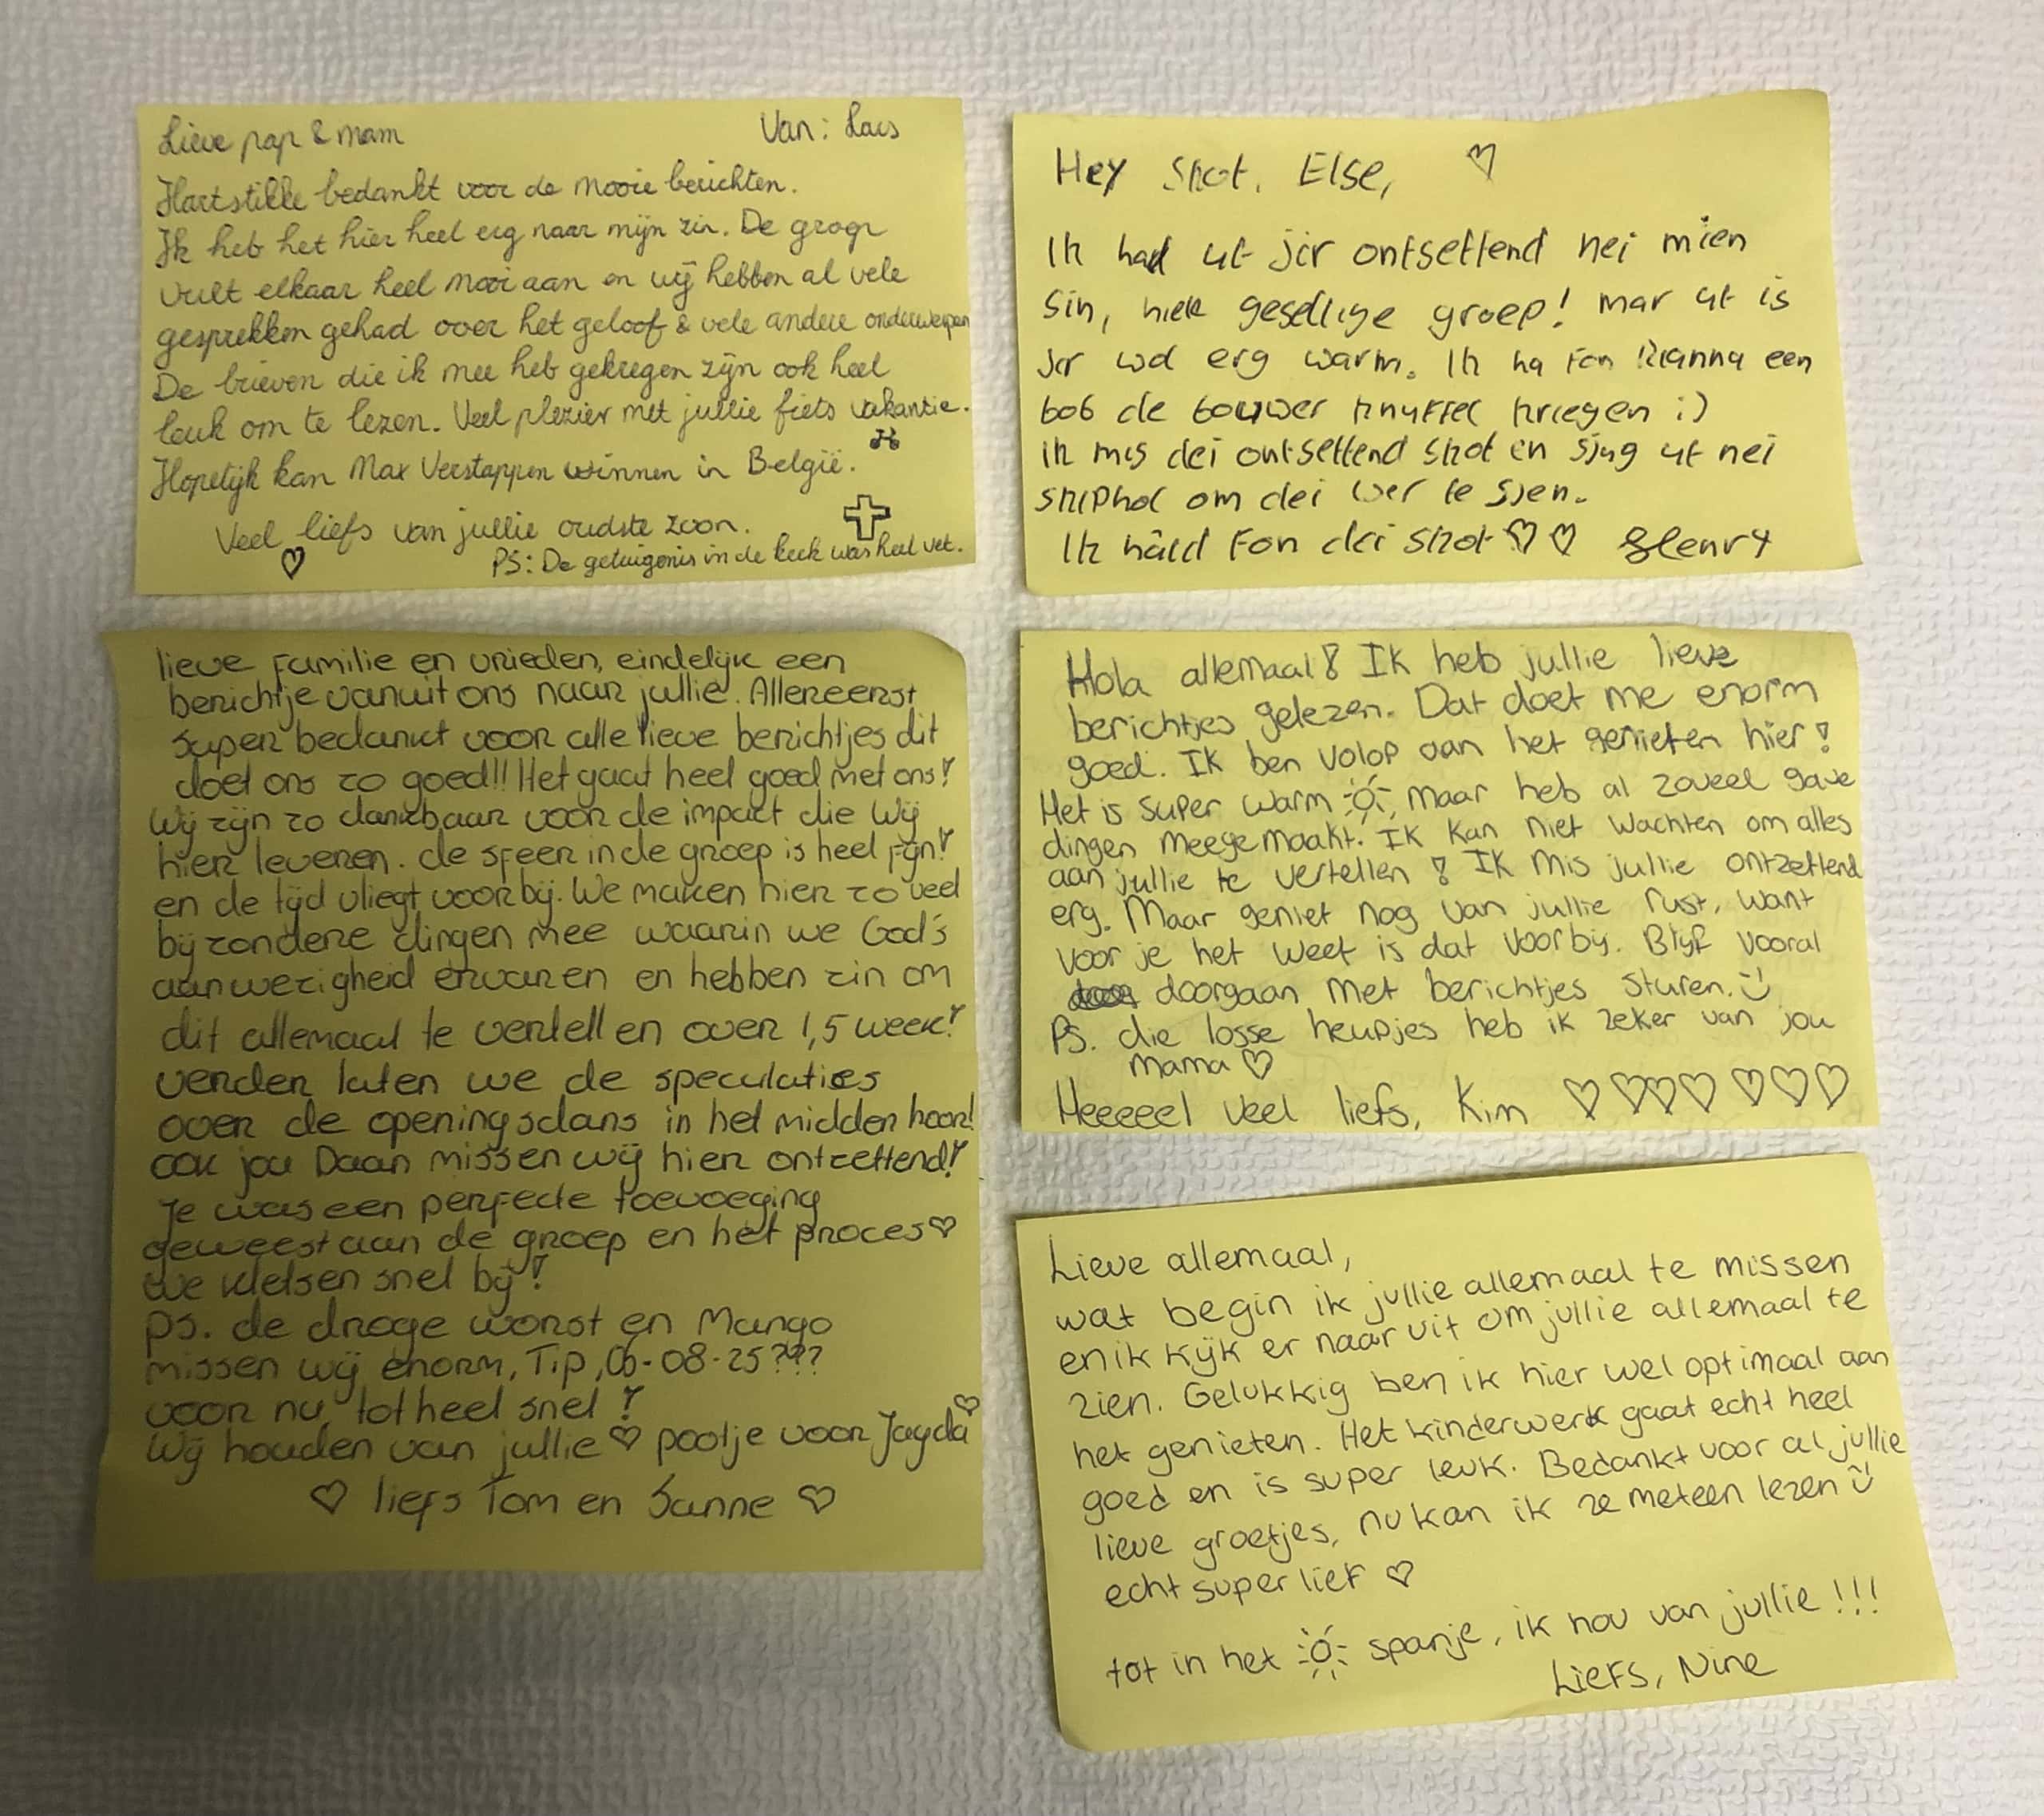 Lieve pap & mam
Van: Lars
Hartstikke bedankt voor de mooie berichten.
Ik heb het hier heel erg naar mijn zin. De groep
vult elkaar heel mooi aan en wij hebben al vele
gesprekken gehad over het geloof & vele andere onderwerpen
De brieven die ik mee heb gekregen zijn ook heel
leuk om te lezen. Veel plezier met jullie fiets vakantie.
Hopelijk kan Max Verstappen winnen in België.
Veel liefs van jullie oudste zoon.
PS: De getuigenis in de kerk was heel vet.
Hey skot, Else, ♡
Ik had ut jir ontsettend nei mien
sin, hiele gesellige groep! mar ut is
jir wol erg warm. Ik ha fon Rianna een
bob de bouwer knuffel kriegen :)
ik mis dei ontsettend skot en sjug ut nei
skiphol om dei wer te sjen.
Ik hâld fon dei skot ♡ ♡ Henry
lieve familie en vrieden, eindelijk een
berichtje vanuit ons naar jullie. Allereerst
super bedankt voor alle lieve berichtjes dit
doet ons zo goed!! Het gaat heel goed met ons!
Wij zijn zo dankbaar voor de impact die wij
hier leveren. de sfeer in de groep is heel fijn!
en de tijd vliegt voorbij. We maken hier zo veel
bijzondere dingen mee waarin we God's
aanwezigheid ervaren en hebben zin om
dit allemaal te vertellen over 1,5 week!
verder laten we de speculaties
over de openingsdans in het midden hoor!
ook jou Daan missen wij hier ontzettend!
Je was een perfecte toevoeging
geweest aan de groep en het proces ♡
We kletsen snel bij!
PS. de droge worst en Mango
missen wij enorm, Tip, 06-08-25???
voor nu, tot heel snel!
Wij houden van jullie ♡ pootje voor Jayda ♡
♡ liefs Tom en Sanne ♡
Hola allemaal! Ik heb jullie lieve
berichtjes gelezen. Dat doet me enorm
goed. Ik ben volop aan het genieten hier!
Het is super warm ☼, maar heb al zoveel gave
dingen meegemaakt. Ik kan niet wachten om alles
aan jullie te vertellen! Ik mis jullie ontzettend
erg. Maar geniet nog van jullie rust, want
voor je het weet is dat voorbij. Blijf vooral
doorgaan met berichtjes sturen. :)
PS. die losse heupjes heb ik zeker van jou
mama ♡
Heeeeel veel liefs, Kim ♡♡♡♡♡♡♡
Lieve allemaal,
wat begin ik jullie allemaal te missen
en ik kijk er naar uit om jullie allemaal te
zien. Gelukkig ben ik hier wel optimaal aan
het genieten. Het kinderwerk gaat echt heel
goed en is super leuk. Bedankt voor al jullie
lieve groetjes, nu kan ik ze meteen lezen :)
echt super lief ♡
tot in het ☼ spanje, ik hou van jullie!!!
Liefs, Nine